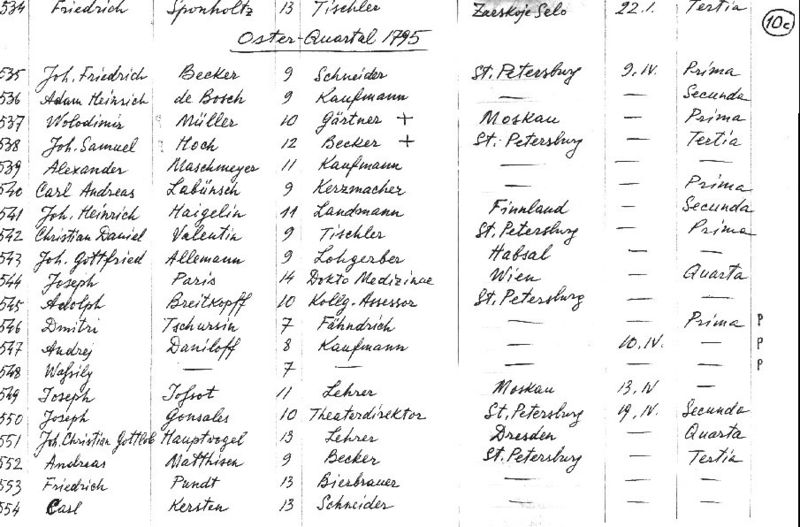 534 Friedrich Sponholtz 13 Tischler Zarskoje Selo 22.I. Tertia
10c
Oster-Quartal 1795
535 Joh. Friedrich Becker 9 Schneider St. Petersburg 9.IV. Prima
536 Adam Heinrich de Bosch 9 Kaufmann — — Secunda
537 Wolodimir Müller 10 Gärtner + Moskau — Prima
538 Joh. Samuel Hoch 12 Becker + St. Petersburg — Tertia
539 Alexander Maschmeyer 11 Kaufmann — — —
540 Carl Andreas Labünsch 9 Kerzmacher — — Prima
541 Joh. Heinrich Haigelin 11 Landmann Finnland — Secunda
542 Christian Daniel Valentin 9 Tischler St. Petersburg — Prima
543 Joh. Gottfried Allemann 9 Lohgerber Habsal — —
544 Joseph Paris 14 Dokto Medizinae Wien — Quarta
545 Adolph Breitkopff 10 Kollg. Assessor St. Petersburg — —
546 Dmitri Tschursin 7 Fähndrich — — Prima P
547 Andrej Daniloff 8 Kaufmann — 10.IV. — P
548 Waßily — 7 — — — — P
549 Joseph 11 Lehrer Moskau 13.IV —
550 Joseph Gonsales 10 Theaterdirektor St. Petersburg 19.IV. Secunda
551 Joh. Christian Gottlob Hauptvogel 13 Lehrer Dresden — Quarta
552 Andreas Matthisen 9 Becker St. Petersburg — Tertia
553 Friedrich Pundt 13 Bierbrauer — — —
554 Carl Kersten 13 Schneider — — —